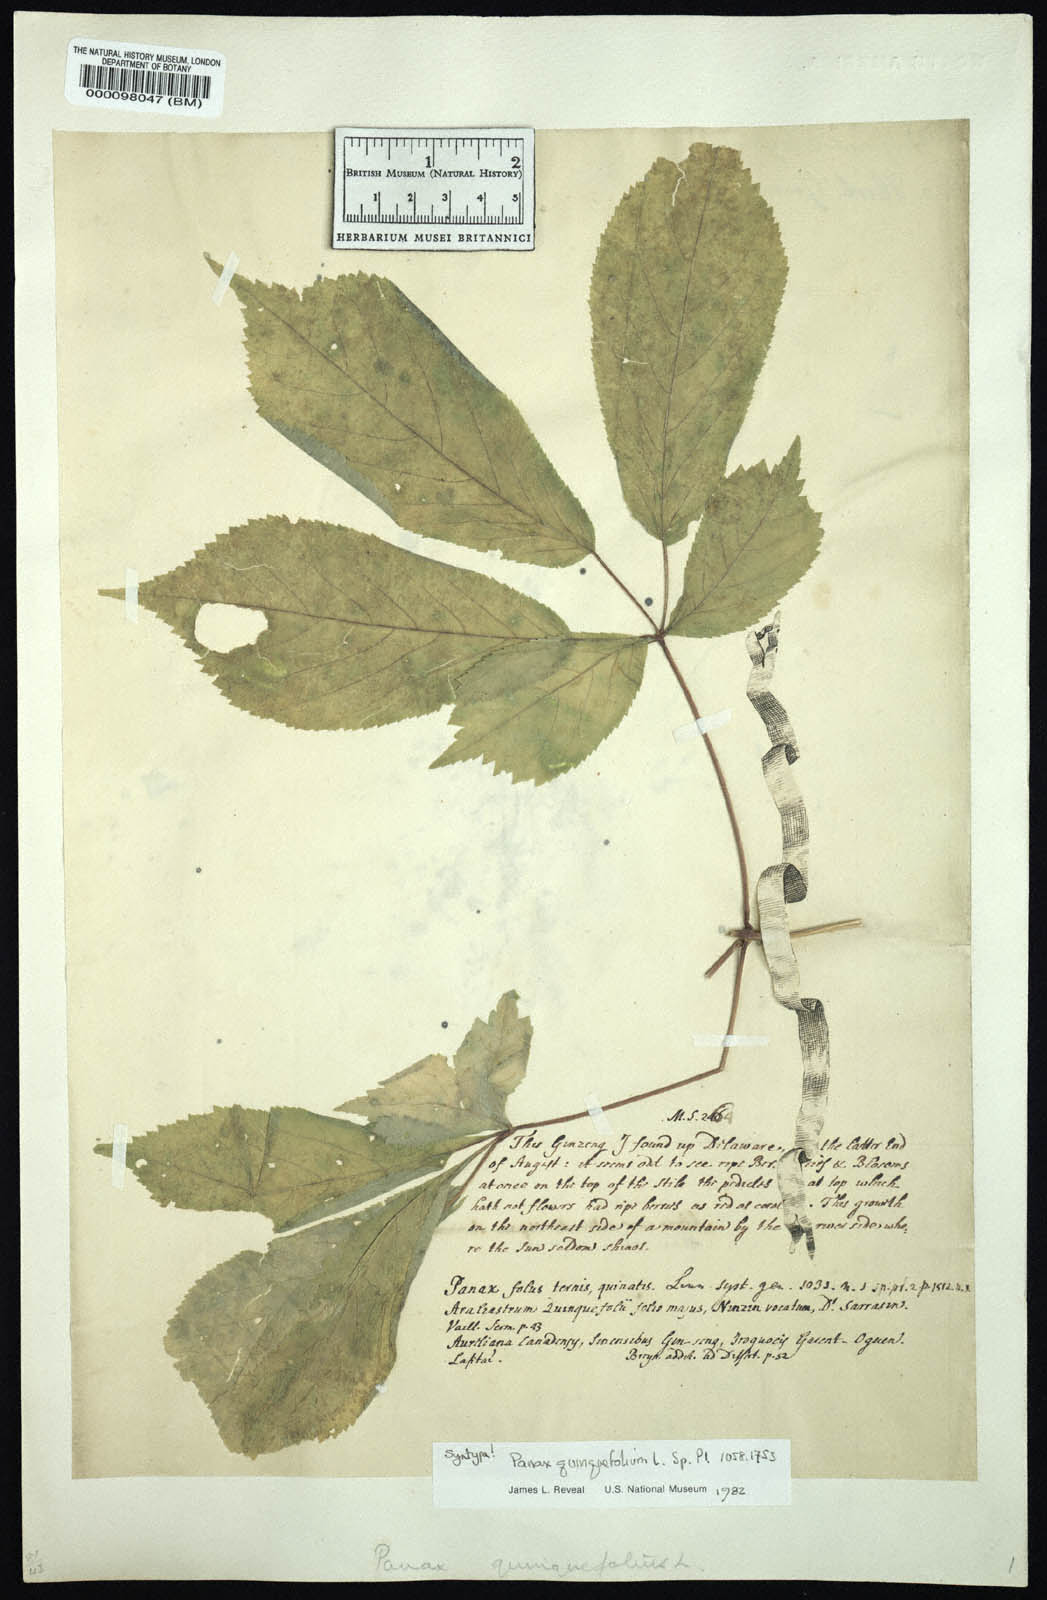 THE NATURAL HISTORY MUSEUM, LONDON
DEPARTMENT OF BOTANY
000098047 (BM)
1 2
BRITISH MUSEUM (NATURAL HISTORY)
1 2 3 4 5
HERBARIUM MUSEI BRITANNICI
M.S. 264
This Ginzeng I found up Dilaware, the latter End
of August: it seems odd to see ripe Ber ries & Blosoms
at once on the top of the Stile the pedicles at top which
hath not flowers had ripe berries as red as coral. This growth
on the northeast side of a mountain by the river side whe,
re the Sun seldom shines.
Panax folus ternis, quinatis. Linn. Syst. gen. 1033. n. 1 Sp. pl. 2. p. 1512. n. 1
Araliastrum Quinquefolii folio majus, Ninzin vocatum, Dr Sarrasin.
Vaill. Serm. p. 43
Aureliana Canadensy, Sinensibus Gin-seng, Iroquocis Garent-Oguen.
Lafitai. Breyn. addit. ad Dissert. p. 52
Syntype! Panax quinquefolium L. Sp. Pl. 1058. 1753
James L. Reveal U.S. National Museum 1982
Panax quinquefolius L
1